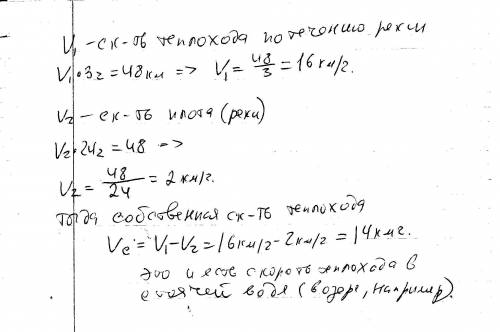 V₁ - ск-ть теплохода по течению реки
V₁•3г = 48 км => V₁ = 48/3 = 16 км/г.
V₂ - ск-ть плота (реки)
V₂•24г = 48 =>
V₂ = 48/24 = 2 км/г.
тогда собственная ск-ть теплохода
Vс = V₁ - V₂ = 16 км/г - 2 км/г = 14 кмг.
это и есть скорость теплохода в
стоячей воде (в озере, например).